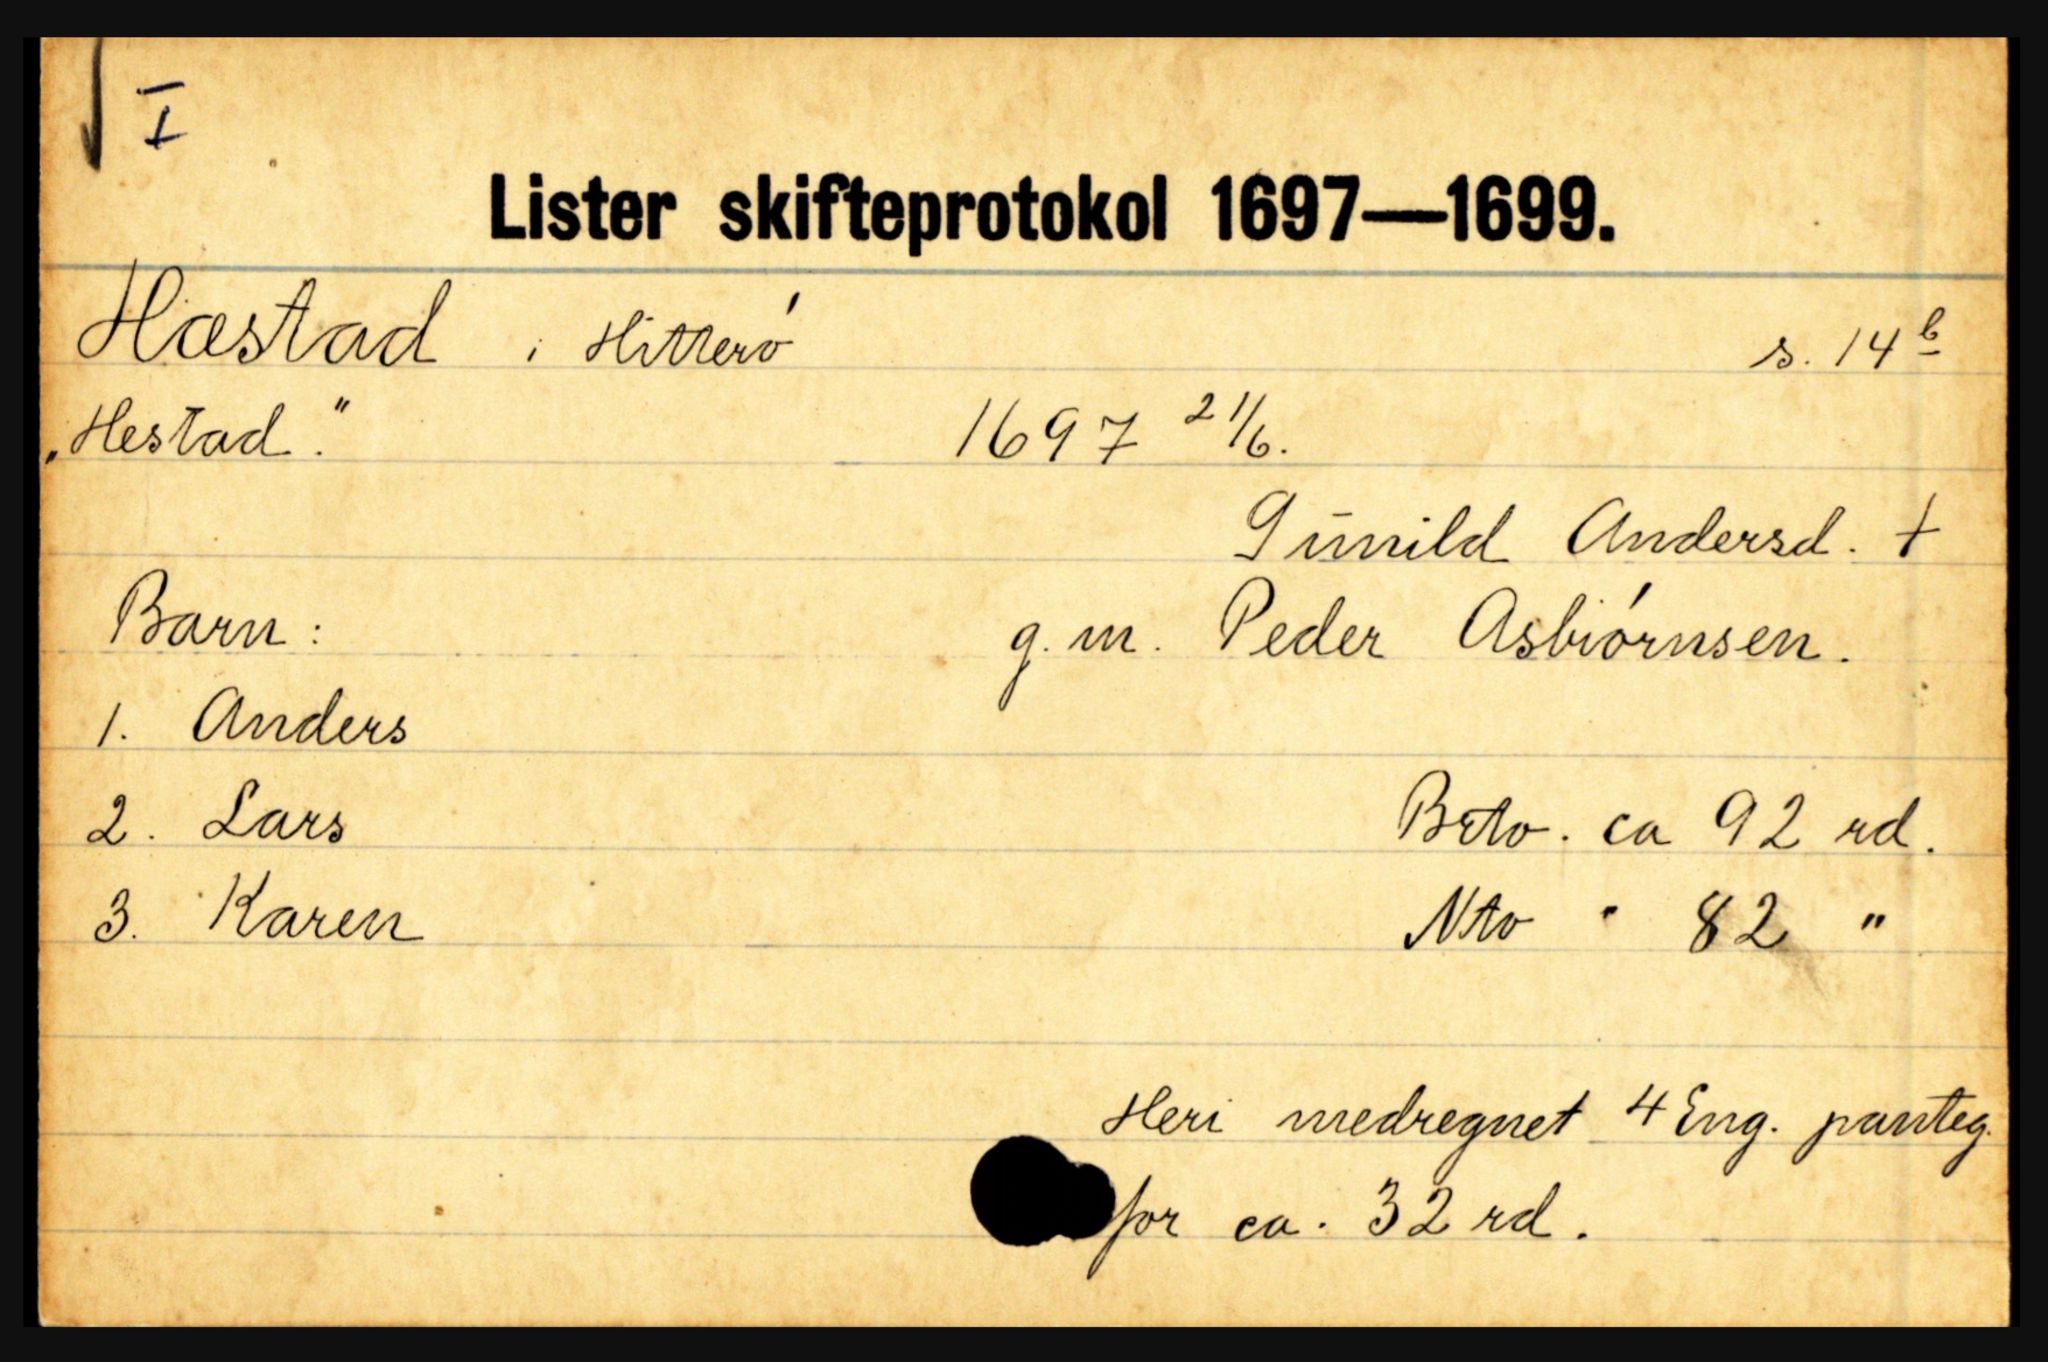 I
Lister skifteprotokol 1697—1699.
Hæstad i Hitteró s. 14 b
„Hestad." 1697 21/6.
Gūnild Andersd. +
Barn: g. m. Peder Asbiórnsen.
1. Anders
2. Lars Brto. ca 92 rd.
3. Karen Nto " 82 "
Heri medregnet 4 Eng. panteg.
for ca. 32 rd.